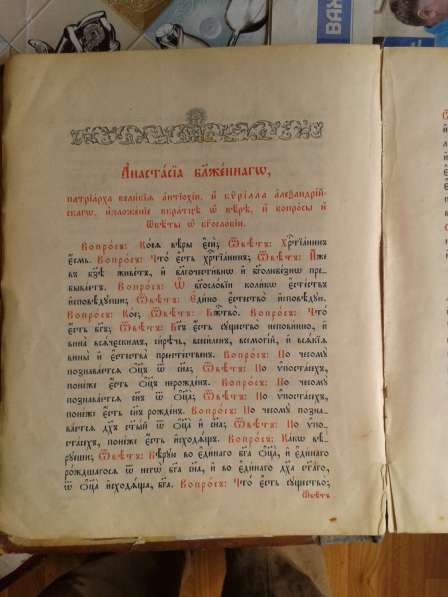 А҆наста́сїа бл҃же́ннагѡ,
патрїа́рха вели́кїѧ а҆нтїо́хїи, и҆ кѷри́лла а҆леѯандрі́й-
скагѡ, и҆зложе́нїе вкра́тцѣ ѡ҆ вѣ́рѣ, и҆ вопро́сы и҆
ѿвѣ́ты ѡ҆ бг҃осло́вїи.
Вопро́съ: Ко́еѧ вѣ́ры є҆сѝ; Ѿвѣ́тъ: Хрⷭ҇тїа́нинъ
є҆́смь. Вопро́съ: Что̀ є҆́сть хрⷭ҇тїа́нинъ; Ѿвѣ́тъ: И҆́же
въ бз҃ѣ живе́тъ, и҆ благоче́стивнѡ и҆ бг҃олюбе́знѡ пре-
быва́етъ. Вопро́съ: Ѡ҆ бг҃осло́вїи коли́кѡ є҆сте́ствъ
и҆сповѣ́дуеши; Ѿвѣ́тъ: Е҆ди́но є҆стество̀ и҆сповѣ́дую.
Вопро́съ: Ко́е; Ѿвѣ́тъ: Бж҃тво̀. Вопро́съ: Что̀
є҆́сть бг҃ъ; Ѿвѣ́тъ: Бг҃ъ є҆́сть существо̀ непови́нно, и҆
вина̀ всѧ́ческимъ, си́рѣчь, веси́ленъ, всемогі́й, и҆ всѧ́кїѧ
вины̀ и҆ є҆стества̀ престе́ственъ. Вопро́съ: По чесо́мꙋ
познава́етсѧ ѻ҆ц҃ъ ѿ сн҃а; Ѿвѣ́тъ: По ѵ҆поста́сехъ,
поне́же є҆́сть ѻ҆ц҃ъ нерожде́нъ. Вопро́съ: По чесо́мꙋ
познава́етсѧ сн҃ъ ѿ ѻ҆ц҃а̀; Ѿвѣ́тъ: По ѵ҆поста́сехъ,
поне́же є҆́сть сн҃ъ рожде́нъ. Вопро́съ: По чесо́мꙋ позна-
ва́етсѧ дх҃ъ ст҃ы́й ѿ ѻ҆ц҃а̀ и҆ сн҃а; Ѿвѣ́тъ: По ѵ҆по-
ста́сехъ, поне́же є҆́сть и҆сходѧ́щъ. Вопро́съ: Ка́кѡ вѣ́-
рꙋеши; Ѿвѣ́тъ: Вѣ́рꙋю во є҆ди́наго бг҃а ѻ҆ц҃а̀, и҆ є҆ди́наго
ро́ждшагосѧ ѿ негѡ̀ бг҃а сн҃а, и҆ во є҆ди́наго дх҃а ст҃а́го,
ѿ ѻ҆ц҃а̀ и҆сходѧ́ща, бг҃а. Вопро́съ: Что̀ є҆́сть существо̀;
Ѿвѣ́тъ